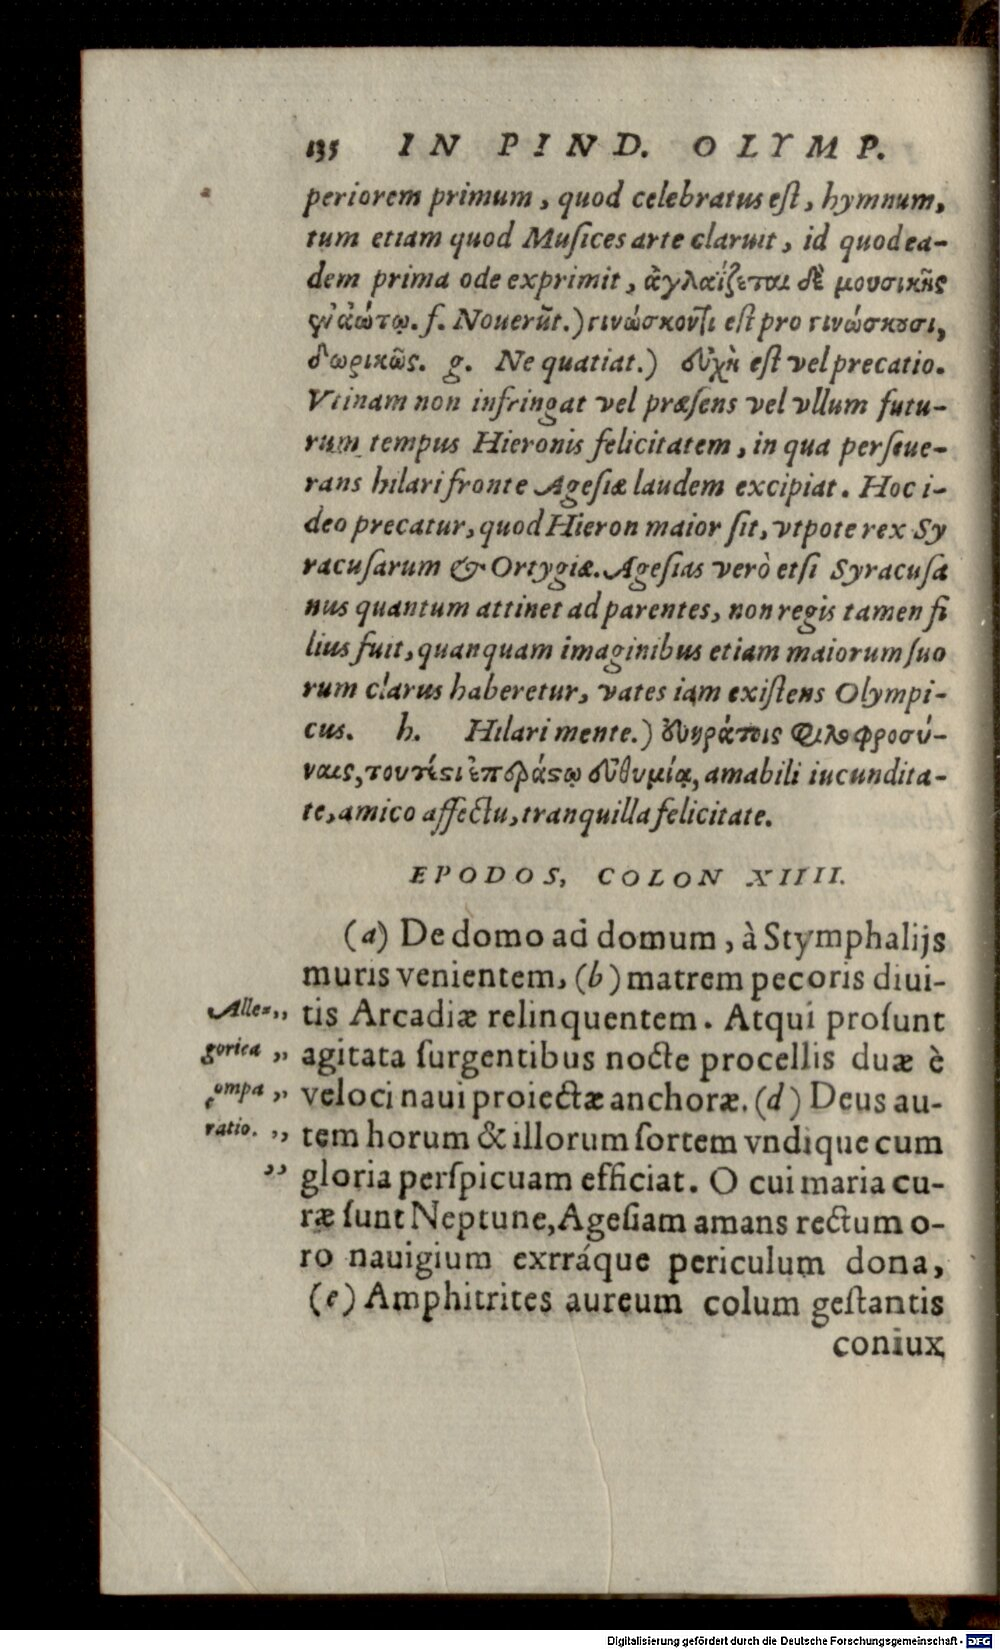 135 IN PIND. OLYMP.
periorem primum, quod celebratus eſt, hymnum,
tum etiam quod Muſices arte claruit, id quod ea-
dem prima ode exprimit, ἀγλαΐζεται δὲ μουσικῆς
ἀώτῳ. f. Nouerũt.) γινώσκοντι eſt pro γινώσκουσι,
δωρικῶς. g. Ne quatiat.) εὐχὴ eſt vel precatio.
Vtinam non infringat vel præſens vel vllum futu-
rum tempus Hieronis felicitatem, in qua perſeue-
rans hilari fronte Ageſiæ laudem excipiat. Hoc i-
deo precatur, quod Hieron maior ſit, vtpote rex Sy
racuſarum & Ortygiæ. Ageſias verò etſi Syracuſa
nus quantum attinet ad parentes, non regis tamen fi
lius fuit, quanquam imaginibus etiam maiorum ſuo
rum clarus haberetur, vates iam exiſtens Olympi-
cus. h. Hilari mente.) φιλοφροσύ-
ναις, τουτέστι εὐθυμίᾳ, amabili iucundita-
te, amico affectu, tranquilla felicitate.
EPODOS, COLON XIIII.
(a) De domo ad domum, à Stymphalijs
muris venientem, (b) matrem pecoris diui-
Alle- „ tis Arcadiæ relinquentem. Atqui proſunt
gorica „ agitata ſurgentibus nocte procellis duæ è
compa „ veloci naui proiectæ anchoræ. (d) Deus au-
ratio. „ tem horum & illorum ſortem vndique cum
„ gloria perſpicuam efficiat. O cui maria cu-
ræ ſunt Neptune, Ageſiam amans rectum o-
ro nauigium exrráque periculum dona,
(e) Amphitrites aureum colum geſtantis
coniux
Digitalisierung gefördert durch die Deutsche Forschungsgemeinschaft - DFG